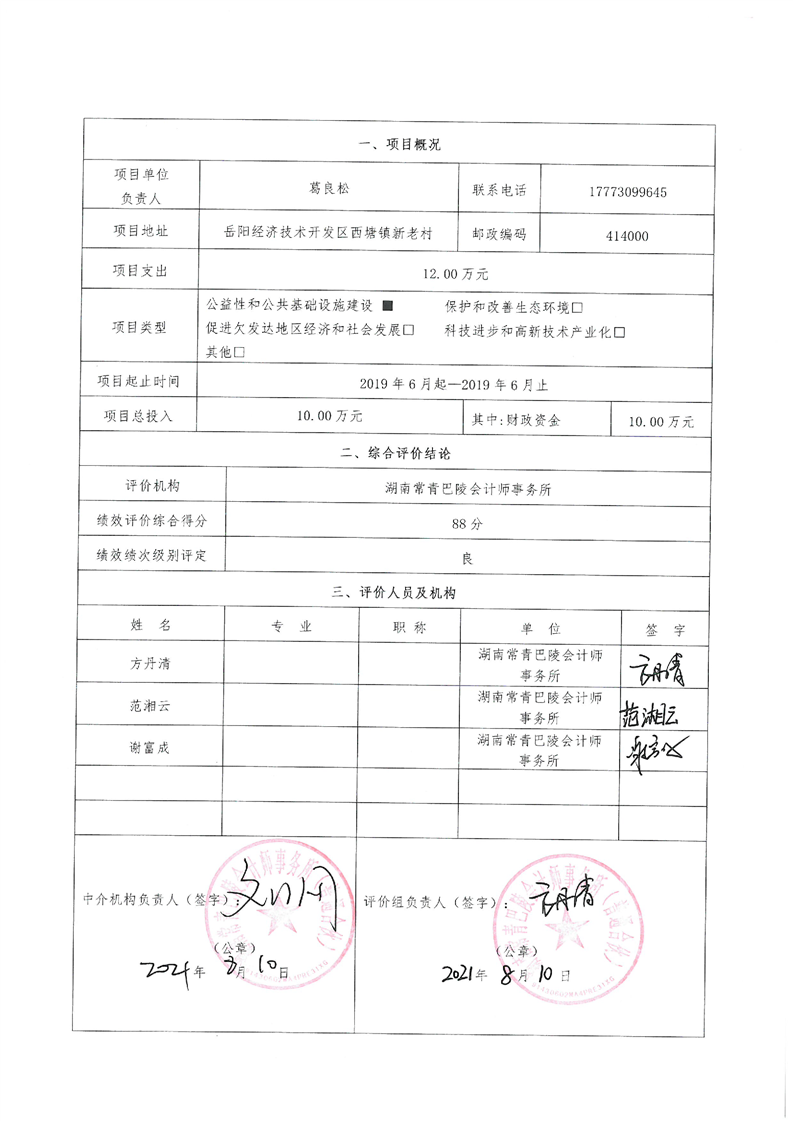 一、项目概况
项目单位
负责人
葛良松
联系电话
17773099645
项目地址
岳阳经济技术开发区西塘镇新老村
邮政编码
414000
项目支出
12.00万元
项目类型
公益性和公共基础设施建设 ■ 保护和改善生态环境□
促进欠发达地区经济和社会发展□ 科技进步和高新技术产业化□
其他□
项目起止时间
2019年6月起—2019年6月止
项目总投入
10.00万元
其中:财政资金
10.00万元
二、综合评价结论
评价机构
湖南常青巴陵会计师事务所
绩效评价综合得分
88分
绩效绩次级别评定
良
三、评价人员及机构
姓 名
专 业
职 称
单 位
签 字
方丹清
湖南常青巴陵会计师
事务所
方丹清
范湘云
湖南常青巴陵会计师
事务所
范湘云
谢富成
湖南常青巴陵会计师
事务所
中介机构负责人（签字）：
（公章）
2021年 8月 10日
评价组负责人（签字）：方丹清
（公章）
2021年 8月 10日